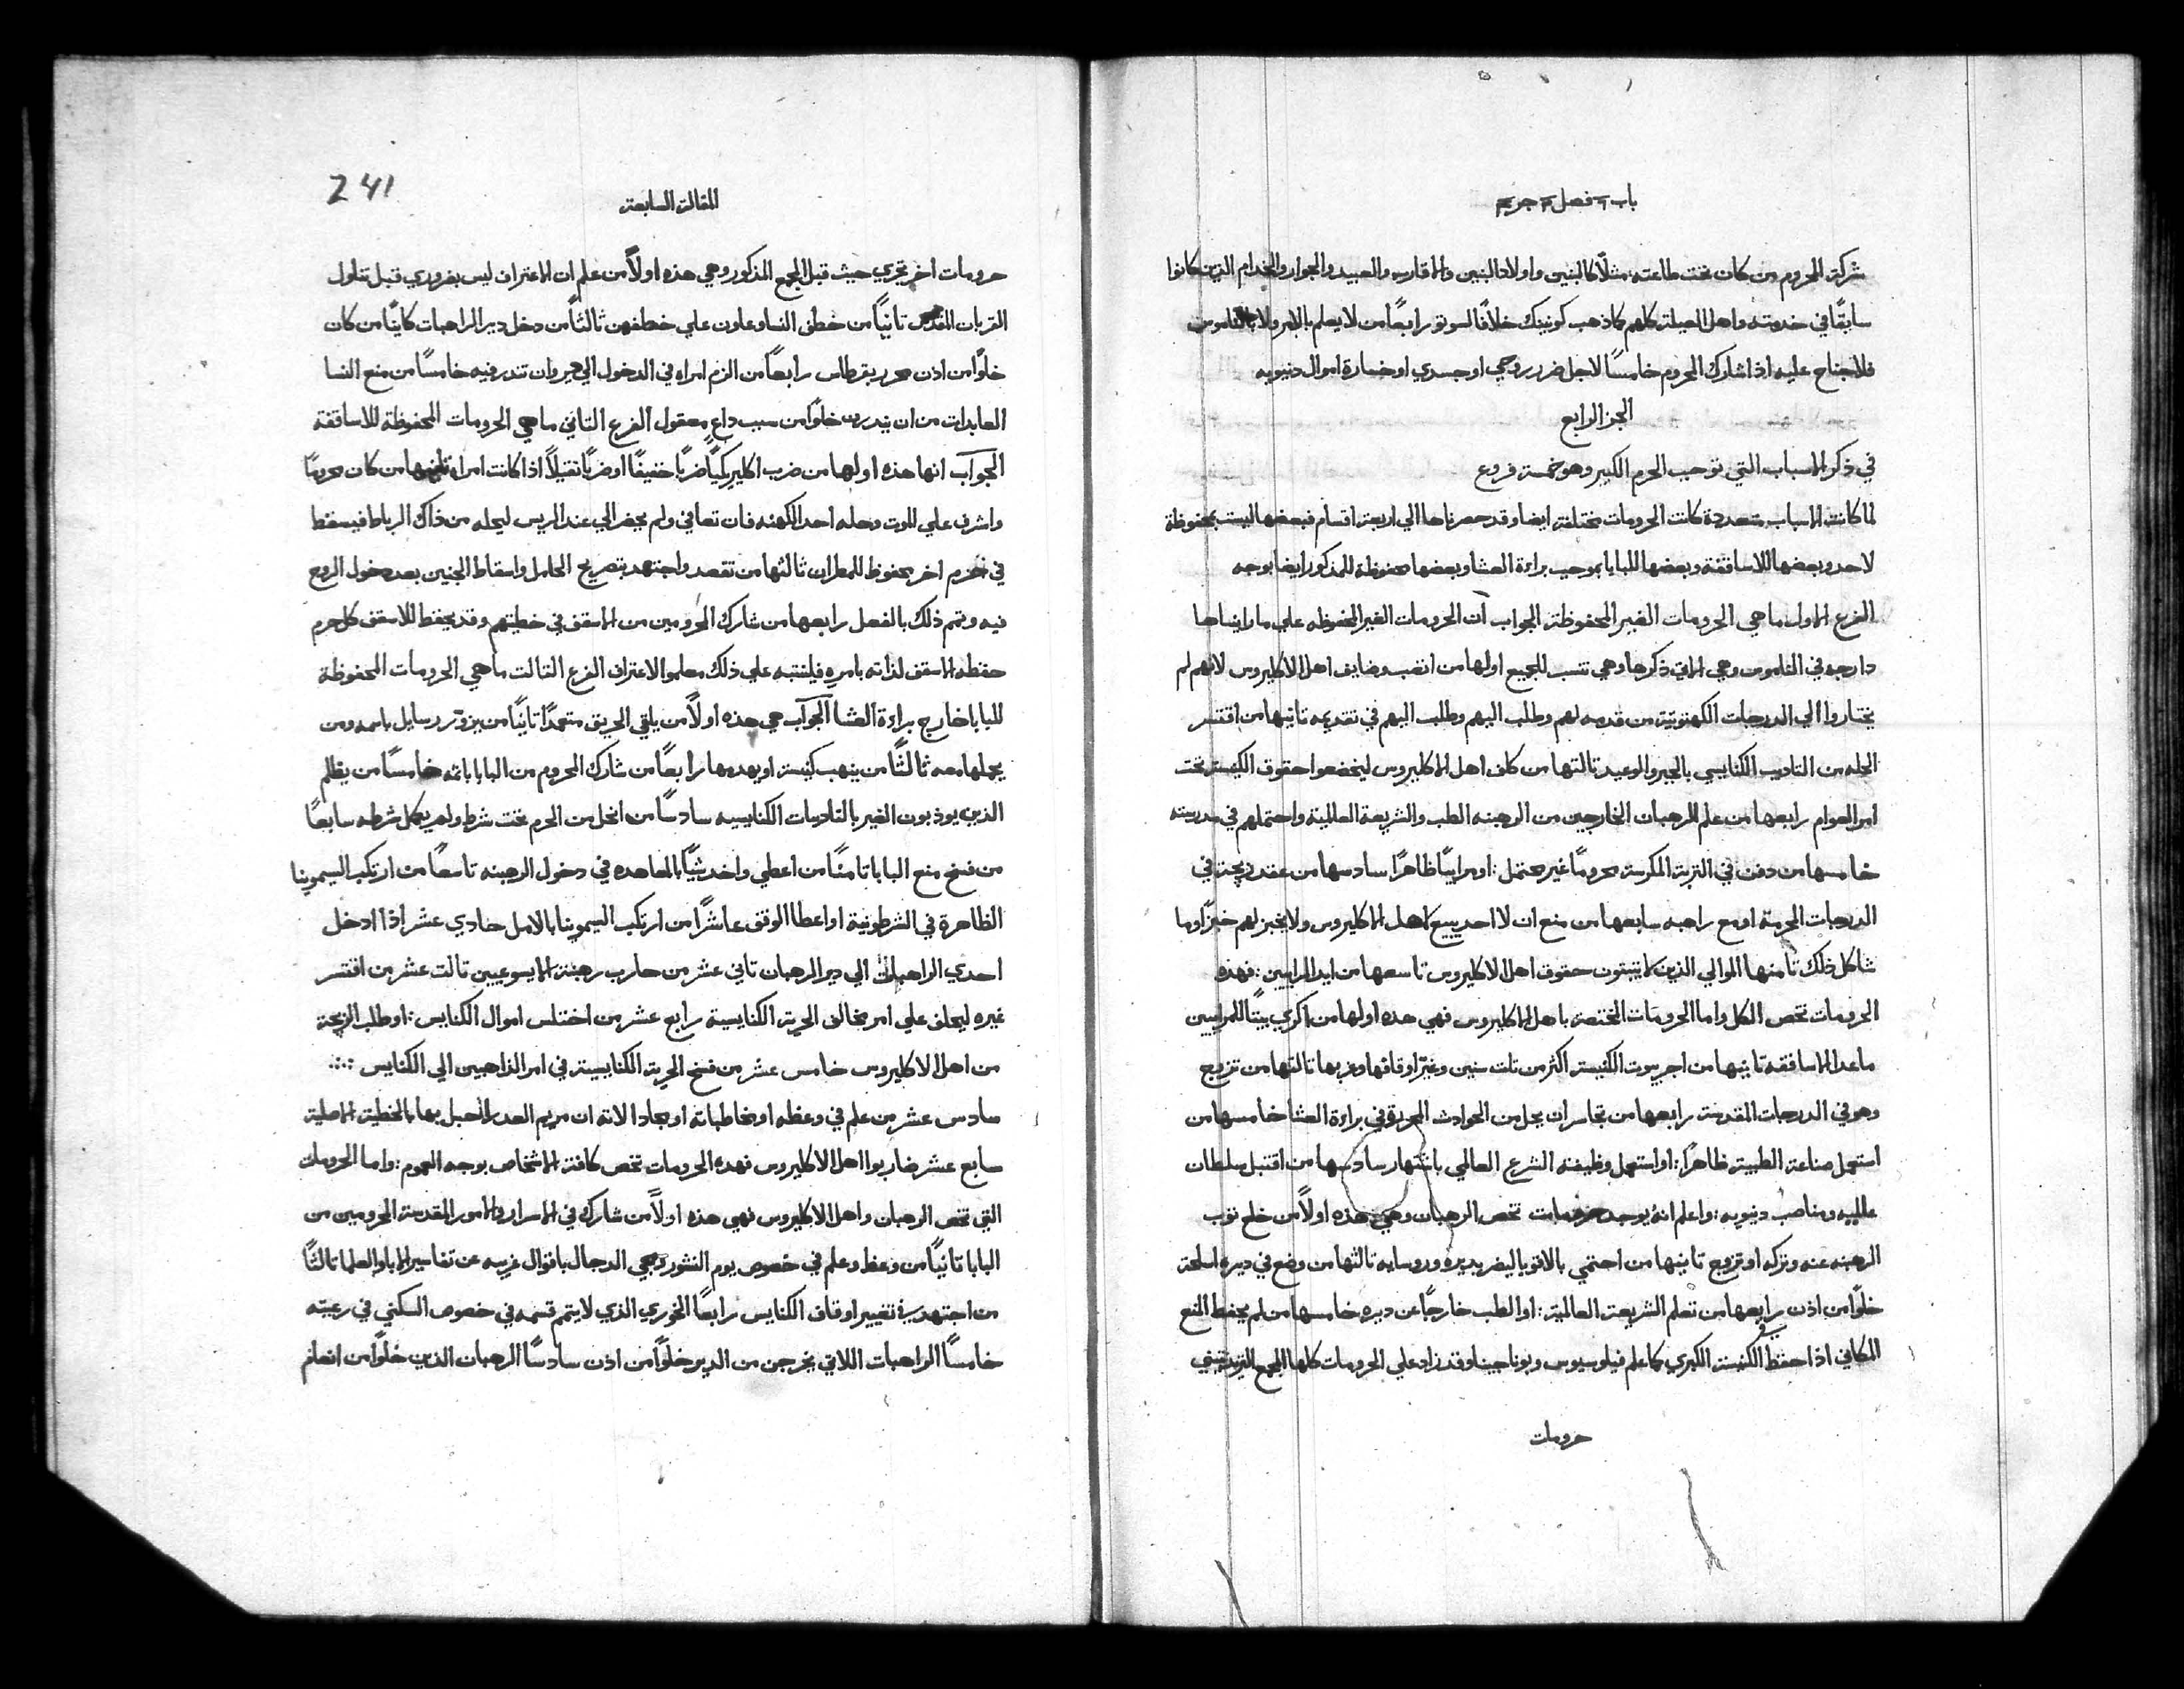 باب ٦ فصل ٣ جزء ٤
شركة المحروم من كان تحت طاعته مثلًا كالبنين واولاد البنين والاقارب والعبيد والجوار والخدام الذين كانوا
سابقًا في خدمته واهل العيلة كلهم كما ذهب كونينك خلافًا لسوتو رابعًا من لا يعلم بالامر ولا بالناموس
فلا جناح عليه اذا شارك المحروم خامسًا لاجل ضرر روحي او جسدي او خسارة اموال دنيويه
الجز الرابع
في ذكر الاسباب التي توجب الحرم الكبير وهو خمسة فروع
لما كانت الاسباب متعددة كانت الحرومات مختلفة ايضا وقد حصرناها الي اربعة اقسام فبعضها ليست بمحفوظة
لاحد وبعضها للاساقفة وبعضها للبابا بموجب براءة العشا وبعضها محفوظة للمذكور ايضا بوجه
الفرع الاول ما هي الحرومات الغير المحفوظة الجواب ان الحرومات الغير المحفوظه علي ما رايناها
دارجه في القاموس وهي الاتي ذكرها وهي تنسب للجميع اولها من انصب وضايف اهل الاكليروس لانهم لم
يختاروا الي الدرجات الكهنوتية من قدمه لهم وطلب اليهم وطلب اليهم في تقديمه تانيها من اقتسر
الحله من التاديب الكنايسي بالجبر والوعيد تالتها من كلف اهل الاكليروس ليخضعوا حقوق الكنيسة تحت
امر العوام رابعها من علم الرهبان الخارجين من الرهبنه الطب والشريعة العالمية واحتملهم في مدرسته
خامسها من دفن في التربة المكرسة محرومًا غير محتمل: او مرابيًا ظاهرًا سادسها من عقد زيجة في
الدرجات المحرمة او مع راهبه سابعها من منع ان لا احد يبيع لاهل الاكليروس ولا يخبز لهم خبزًا وما
شاكل ذلك تامنها الموالي الذين لا يتبتون حقوق اهل الاكليروس تاسعها من ايد المرابيين: فهذه
الحرومات تخص الكل واما الحرومات المختصة باهل الاكليروس فهي هذه اولها من اكري بيتًا للمرابيين
ماعدا الاساقفه تانيها من اجر بيوت الكنيسة اكثر من تلت سنين وغير اوقافها وعزبها تالتها من تزوج
وهو في الدرجات المقدسة رابعها من تجاسر ان يحل من الحوادث المحررة في براءة العشا خامسها من
استعمل صناعة الطبية ظاهرًا: او استعمل وظيفته الشرع العالمي باشتهار سادسها من اقتبل سلطان
عالميه ومناصب دنيويه: واعلم انه يوجد حرومات تخص الرهبان وهي هذه اولًا من خلع توب
الرهبنه عنه وتركه او تزوج تانيها من احتمي بالاقويا ليضر بديره وروسايه تالتها من وضع في ديره اسلحة
خلوًا من اذن رابعها من تعلم الشريعة العالمية: او الطب خارجًا عن ديره خامسها من لم يحفظ المنع
المكاني اذا حفظ الكنيسة الكبري كما علم فيلوسيوس وبوناجينا وقد زاد علي الحرومات كلها المجمع التريدنتيني
حرومات
المقالة السابعة
241
حرومات اخر تجري حيث قبل المجمع المذكور وهي هذه اولًا من علم ان الاعتراف ليس بضروري قبل تناول
القربان المقدس تانيًا من خطف النسا وعاون علي خطفهن ثالثًا من دخل دير الراهبات كاينًا من كان
خلوًا من اذن محرر بقرطاس رابعًا من الزم امراه في الدخول الي دير وان تندر فيه خامسًا من منع النسا
العابدات من ان يندرن خلوًا من سبب داعٍ معقول الفرع التاني ما هي الحرومات المحفوظة للاساقفة
الجواب انها هذه اولها من ضرب اكليريكيًا ضربًا خفيفًا او ضربًا تقيلًا اذا كانت امراه تانيها من كان محرومًا
واشرف علي الموت وحله احد الكهنه فان تعافي ولم يحضر الي عند الريس ليحله من ذاك الرباط فيسقط
في حرم اخر محفوظ للمطران ثالثها من تقصد واجتهد بتصريح الحامل واسقاط الجنين بعد دخول الروح
فيه وتم ذلك بالفعل رابعها من شارك المحرومين من الاسقف في خطيتهم وقد يحفظ للاسقف كل حرم
حفظه الاسقف لذاته بامره فلينتبه علي ذلك معلموا الاعتراف الفرع التالت ما هي الحرومات المحفوظة
للبابا خارج براءة العشا الجواب هي هذه اولًا من يلقي الحريق متعمدًا تانيًا من يزور رسايل باسمه ومن
يحملها معه ثالثًا من ينهب كنيسة او يهدمها رابعًا من شارك المحروم من البابا باثمه خامسًا من يظلم
الذين يوذبون الغير بالتاديبات الكنايسيه سادسًا من انحل من الحرم تحت شرط ولم يكمل شرطه سابعًا
من فسخ منع البابا تامنًا من اعطي واخد شيًا بالمعاهده في دخول الرهبنه تاسعًا من ارتكب السيمونيا
الظاهرة في الشرطونية او اعطا الوقف عاشرًا من ارتكب السيمونيا بالامل حادي عشر اذا ادخل
احدي الراهبات الي دير الرهبان تاني عشر من حارب رهبنة اليسوعيين تالت عشر من اقتسر
غيره ليحلف علي امر مخالف الحرية الكنايسية رابع عشر من اختلس اموال الكنايس: او طلب الزيجة
من اهل الاكليروس خامس عشر من فسخ الحرية الكنايسية في امر الذاهبين الي الكنايس
سادس عشر من علم في وعظه او مخاطباته او مجادلاته ان مريم العدرا انحبل بها بالخطية الاصلية
سابع عشر ضاربوا اهل الاكليروس فهده الحرومات تخص كافة الاشخاص بوجه العموم: واما الحرومات
التي تخص الرهبان واهل الاكليروس فهي هذه اولًا من شارك في الاسرار والامور المقدسة المحرومين من
البابا تانيًا من وعظ وعلم في خصوص يوم النشور ومجي الدجال باقوال غريبه عن تفاسير الابا والعلما تالتًا
من اجتهد في تغيير اوقاف الكنايس رابعًا الخوري الذي لا يتمم قسمه في خصوص السكني في رعيته
خامسًا الراهبات اللاتي يخرجن من الدير خلوًا من اذن سادسًا الرهبان الذين خلوًا من انعام